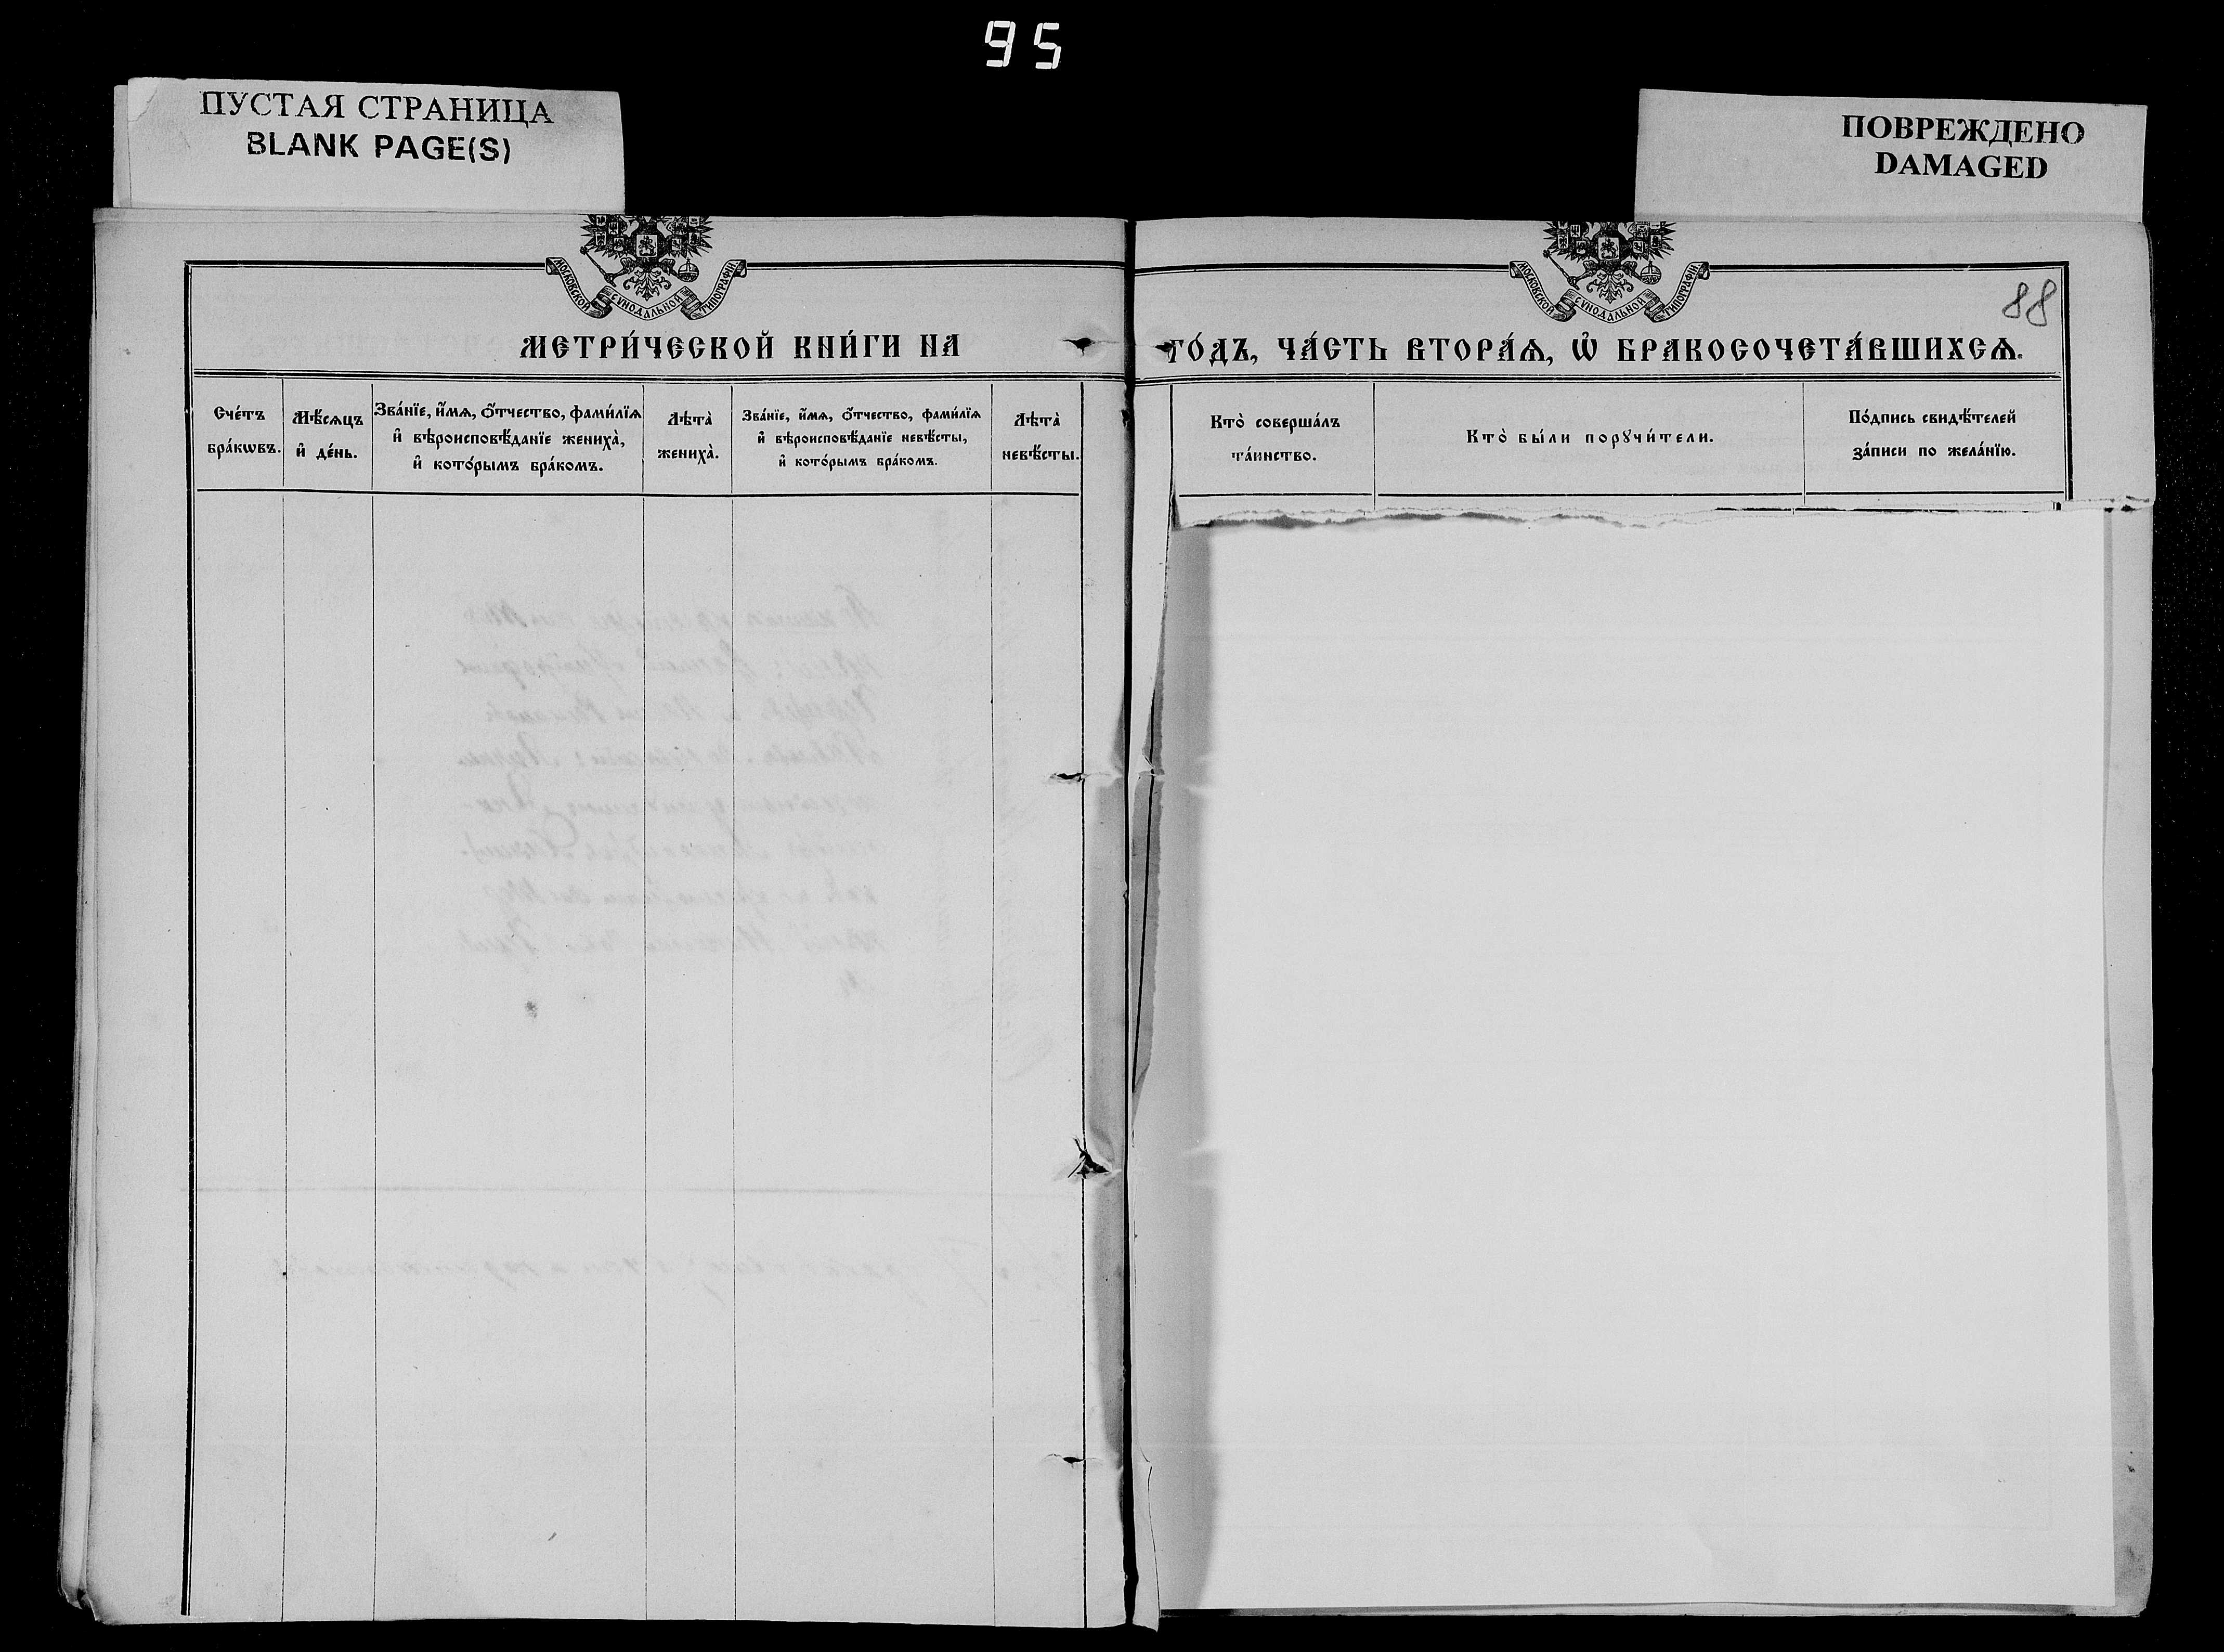 95
ПУСТАЯ СТРАНИЦА
BLANK PAGE(S)
ПОВРЕЖДЕНО
DAMAGED
МОСКОВСКОЙ СѴНОДАЛЬНОЙ ТИПОГРАФІИ
МОСКОВСКОЙ СѴНОДАЛЬНОЙ ТИПОГРАФІИ
88
МЕТРИ́ЧЕСКОЙ КНИ́ГИ НА
ГО́ДЪ, ЧА́СТЬ ВТОРА́Ѧ, Ѡ҆ БРАКОСОЧЕТА́ВШИХСѦ.
Сче́тъ
бра́кѡвъ.
Мѣ́сѧцъ
и҆ де́нь.
Зва́нїе, и҆́мѧ, ѻ҆́тчество, фами́лїѧ
и҆ вѣроисповѣ́данїе жениха̀,
и҆ кото́рымъ бра́комъ.
Лѣта̀
жениха̀.
Зва́нїе, и҆́мѧ, ѻ҆́тчество, фами́лїѧ
и҆ вѣроисповѣ́данїе невѣ́сты,
и҆ кото́рымъ бра́комъ.
Лѣта̀
невѣ́сты.
Кто̀ соверша́лъ
та́инство.
Кто̀ бы́ли порꙋчи́тели.
По́дпись свидѣ́телей
за́писи по жела́нїю.